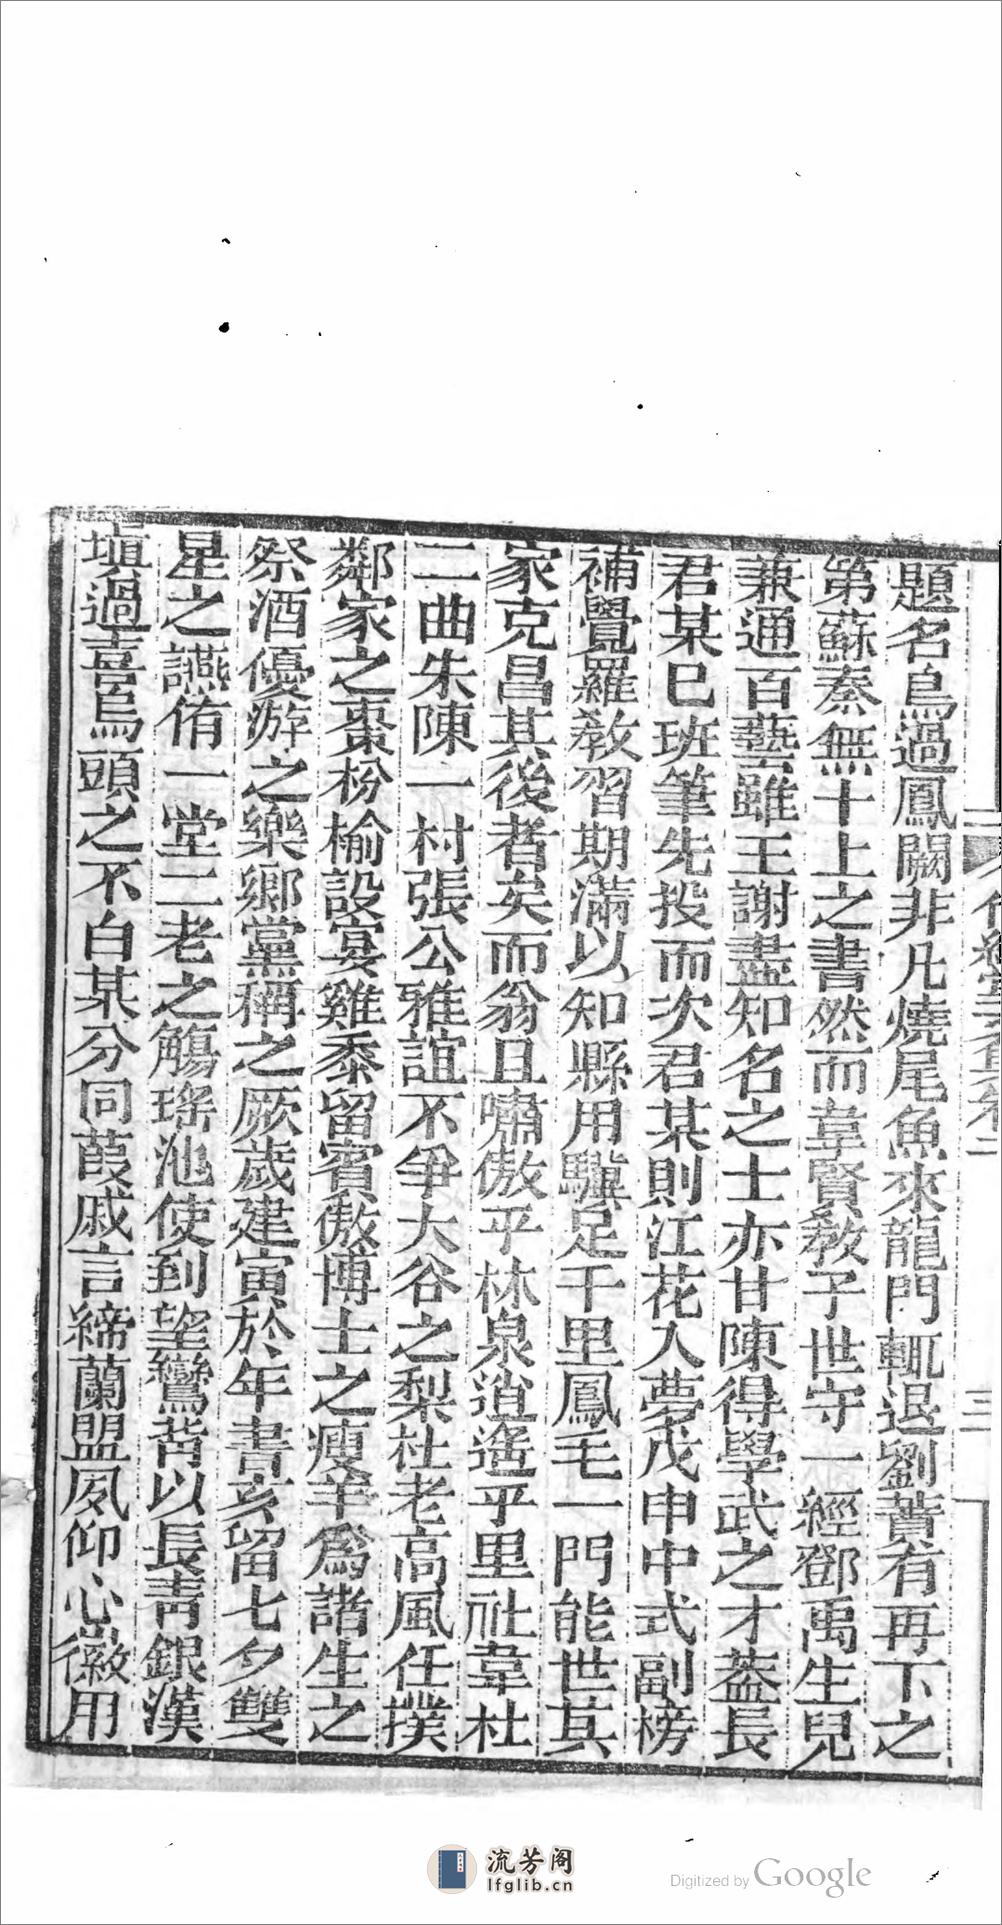 題名鳥過鳳闕非凡燒尾魚來龍門輒退劉蕡有再下之
第蘇秦無十上之書然而韋賢敎子世守一經鄧禹生兒
兼通百藝雖王謝盡知名之士亦甘陳得學武之才蓋長
君某已班筆先投而次君某則江花入夢戊申中式副榜
補覺羅敎習期滿以知縣用驥足千里鳳毛一門能世其
家克昌其後者矣而翁且嘯傲乎林泉逍遙乎里社韋杜
二曲朱陳一村張公雅誼不爭大谷之梨杜老高風任撲
鄰家之棗枌榆設宴雞黍留賓傲博士之瘦羊爲諸生之
祭酒優游之樂鄉黨稱之厥歲建寅於年書亥留七夕雙
星之讌侑一堂二老之觴瑤池使到望鸞背以長靑銀漢
塡過喜烏頭之不白某分同葭戚言締蘭盟夙仰心徽用
三
流芳阁
lfglib.cn
Digitized by Google